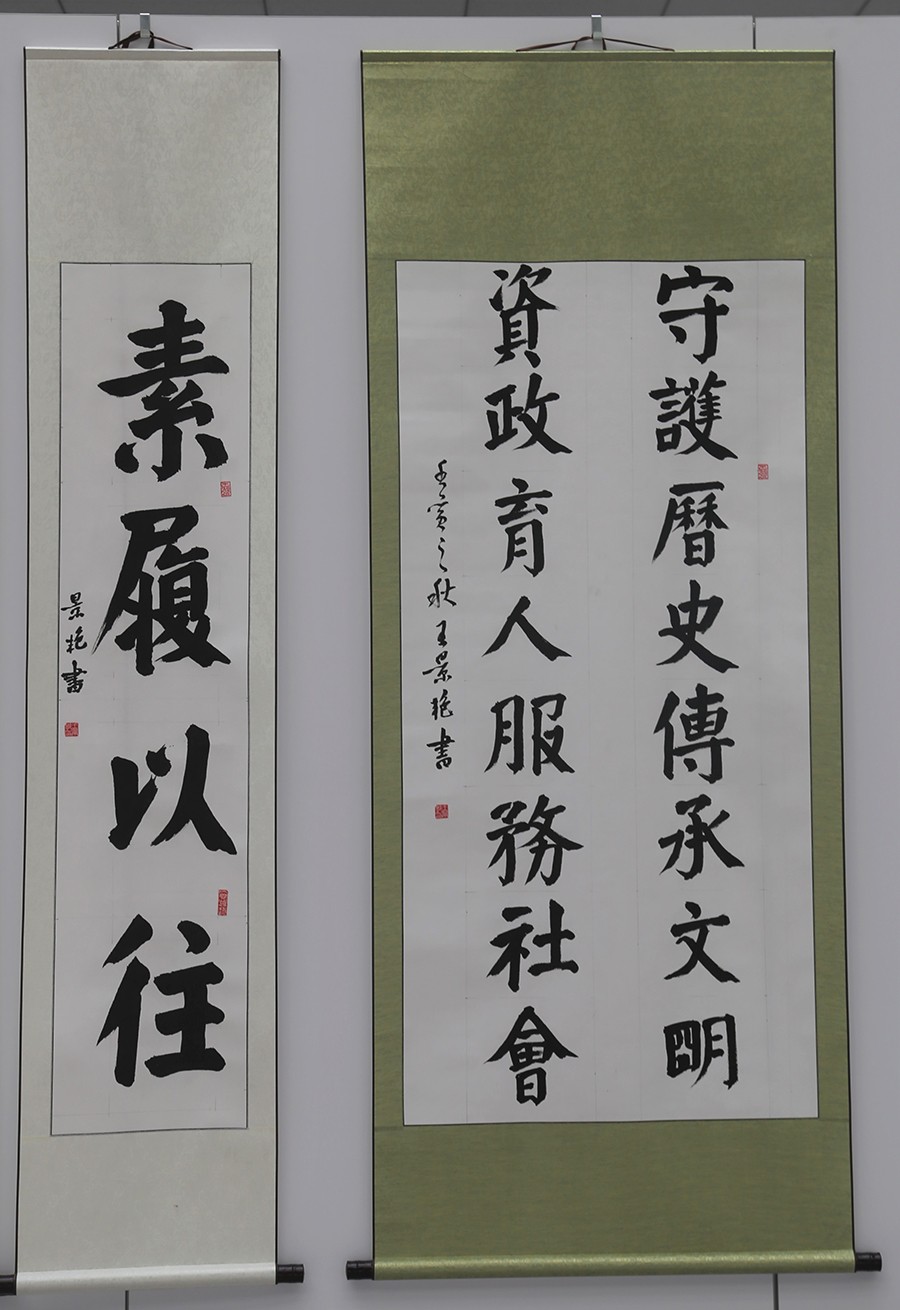 守護曆史傳承文明
資政育人服務社會
壬寅之秋王景艳書
素履以往
景艳書